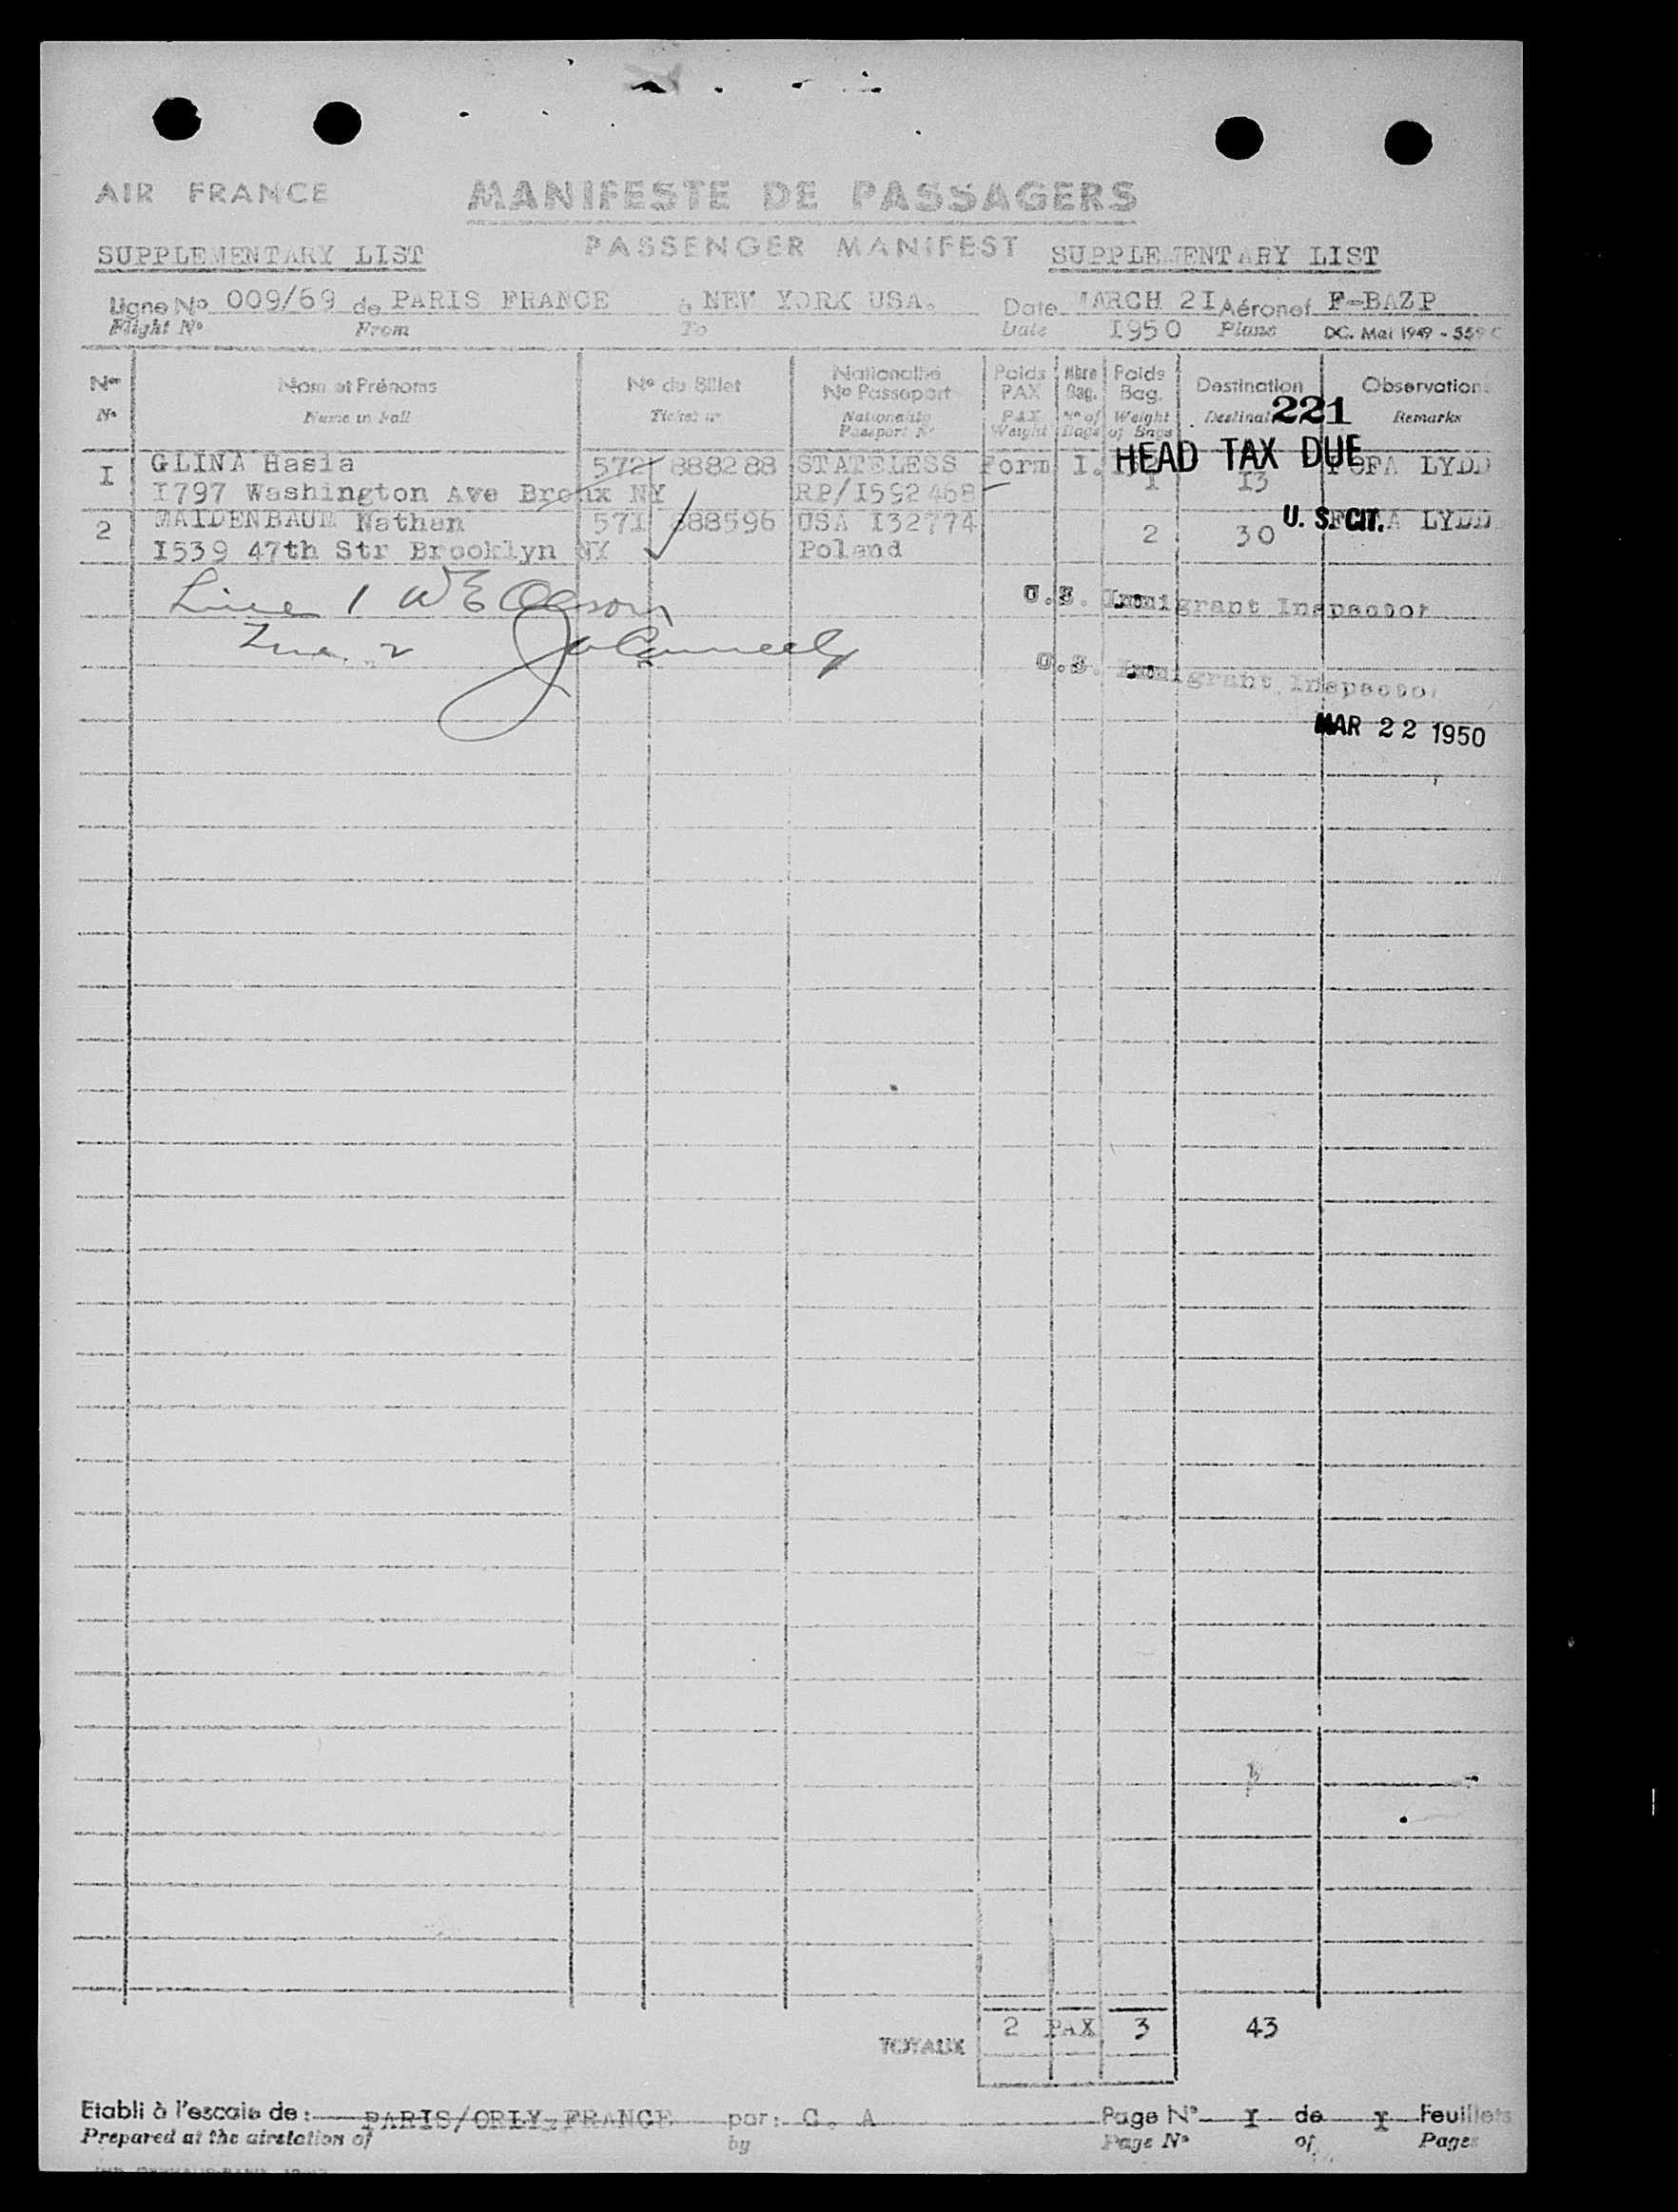 AIR FRANCE
MANIFESTE DE PASSAGERS
PASSENGER MANIFEST
SUPPLEMENTARY LIST
SUPPLEMENTARY LIST
Ligne No 009/69 de PARIS FRANCE à NEW YORK USA. Date MARCH 2I Aéronef F-BAZP
Flight No From To Date I950 Plane DC. Mai 1949 - 559 C
Nos Nom et Prénoms No du Billet Nationalité No Passeport Poids PAX Nbre Bag. Poids Bag. Destination Observations
No Name in full Ticket no Nationality Passport No PAX Weight No of Bags Weight of Bags Destinat 221 Remarks
I GLINA Hasia 572 888288 STATELESS Form I. HEAD TAX DUE LYDD
I797 Washington Ave Bronx NY RP/I592468 I I3
2 MAIDENBAUM Nathan 571 888596 USA I32774 U. S. CIT. LYDD
I539 47th Str Brooklyn NY Poland 2 30
Line 1 U.S. Immigrant Inspector
Line 2 U.S. Immigrant Inspector
MAR 22 1950
TOTAUX 2 PAX 3 43
Etabli à l'escale de: PARIS/ORLY.FRANCE par: C. A Page No I de I Feuillets
Prepared at the airstation of by Page No of Pages